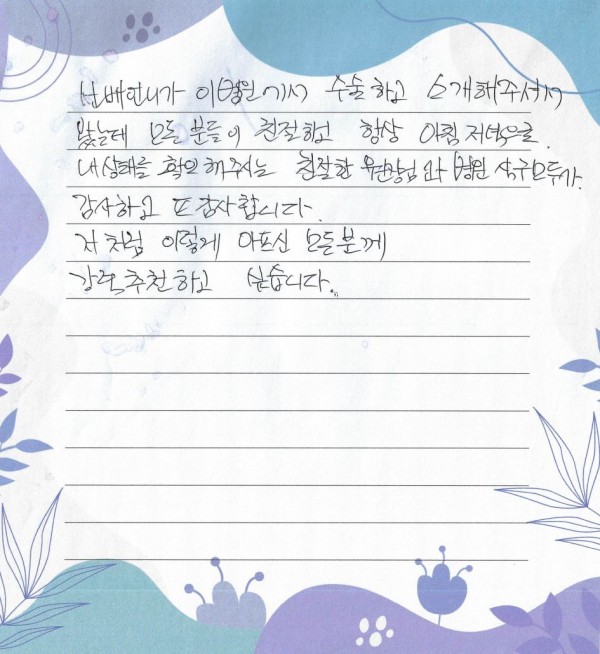 선배언니가 이병원에서 수술하고 소개해주셔서
왔는데 모든 분들이 친절하고 항상 아침 저녁으로
내상태를 확인해주시는 친절한 원장님과 병원 식구모두가
감사하고 또 감사합니다.
저처럼 이렇게 아프신 모든분께
강력추천하고 싶습니다.